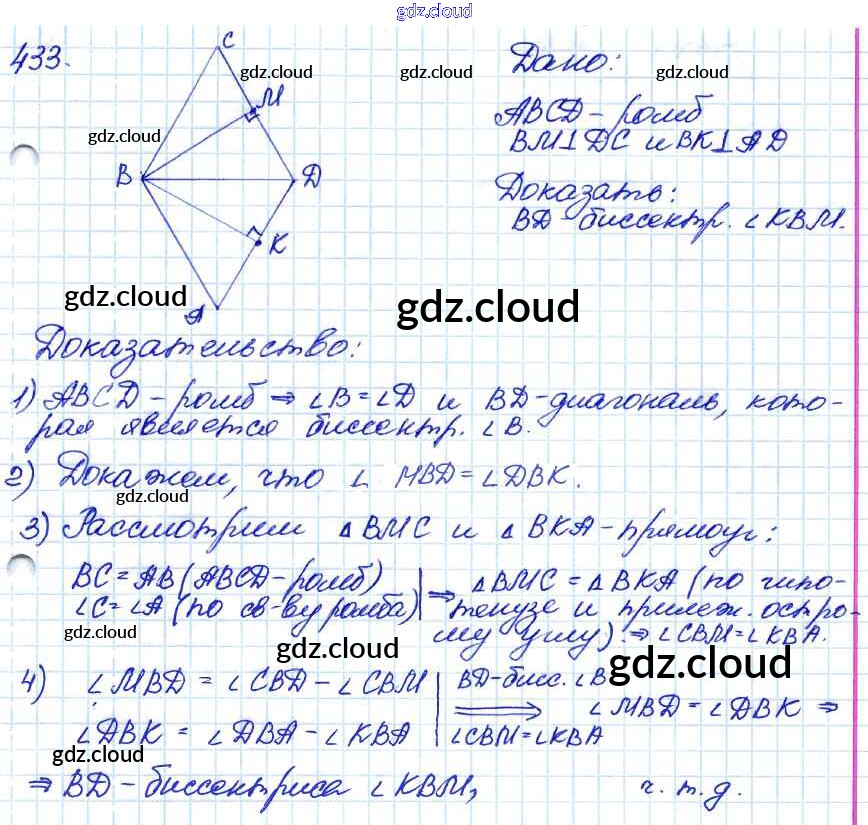 gdz.cloud
433.
C
M
B
D
K
A
Дано:
ABCD - ромб
BM⊥DC и BK⊥AD
Доказать:
BD - биссектр. ∠KBM.
gdz.cloud
gdz.cloud
gdz.cloud
gdz.cloud
gdz.cloud
Доказательство:
1) ABCD - ромб ⇒ ∠B = ∠D и BD - диагональ, кото-
рая является биссектр. ∠B.
2) Докажем, что ∠ MBD = ∠DBK.
gdz.cloud
3) Рассмотрим △BMC и △BKA - прямоуг:
BC = AB (ABCD - ромб) | ⇒ △BMC = △BKA (по гипо-
∠C = ∠A (по св-ву ромба) | тенузе и прилеж. остро-
му углу) ⇒ ∠CBM = ∠KBA.
gdz.cloud
gdz.cloud
gdz.cloud
4) ∠MBD = ∠CBD - ∠CBM | BD - бисс. ∠B
⇒ ∠MBD = ∠DBK ⇒
∠DBK = ∠DBA - ∠KBA | ∠CBM = ∠KBA
gdz.cloud
⇒ BD - биссектриса ∠KBM, ч. т. д.